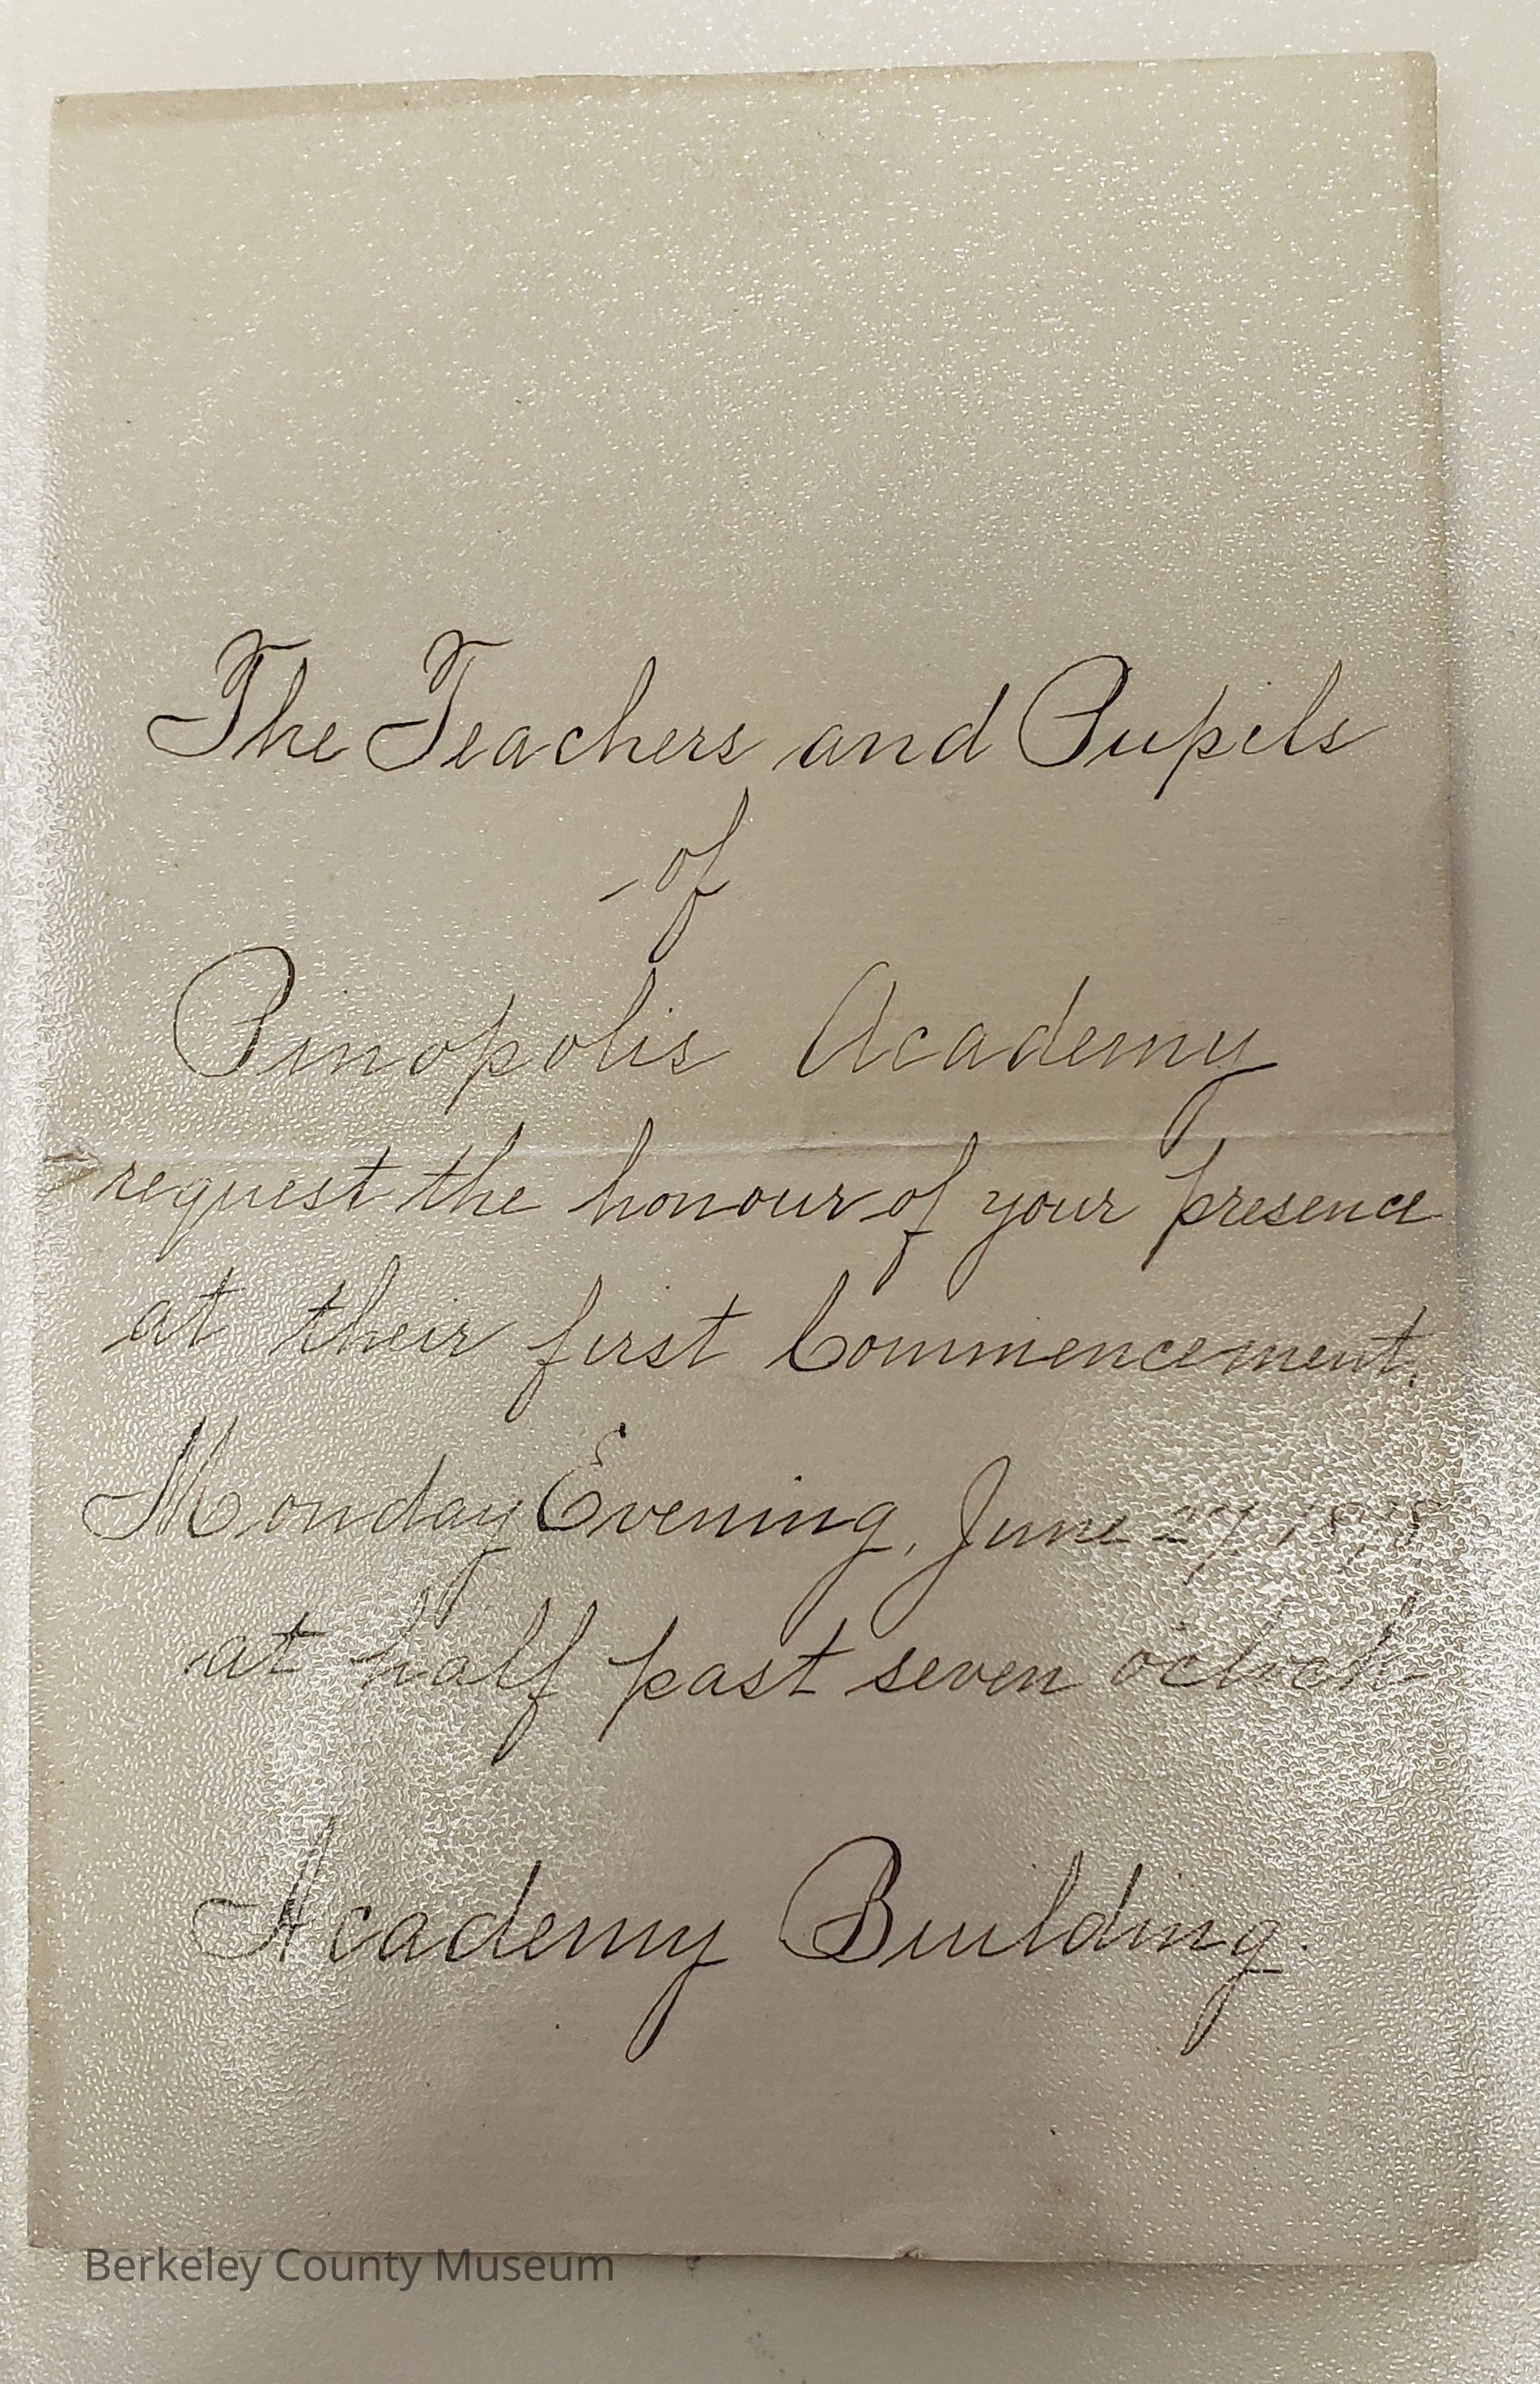 The Teachers and Pupils
of
Pinopolis Academy
request the honour of your presence
at their first Commencement,
Monday Evening, June 27,
at half past seven o'clock
Academy Building.
Berkeley County Museum